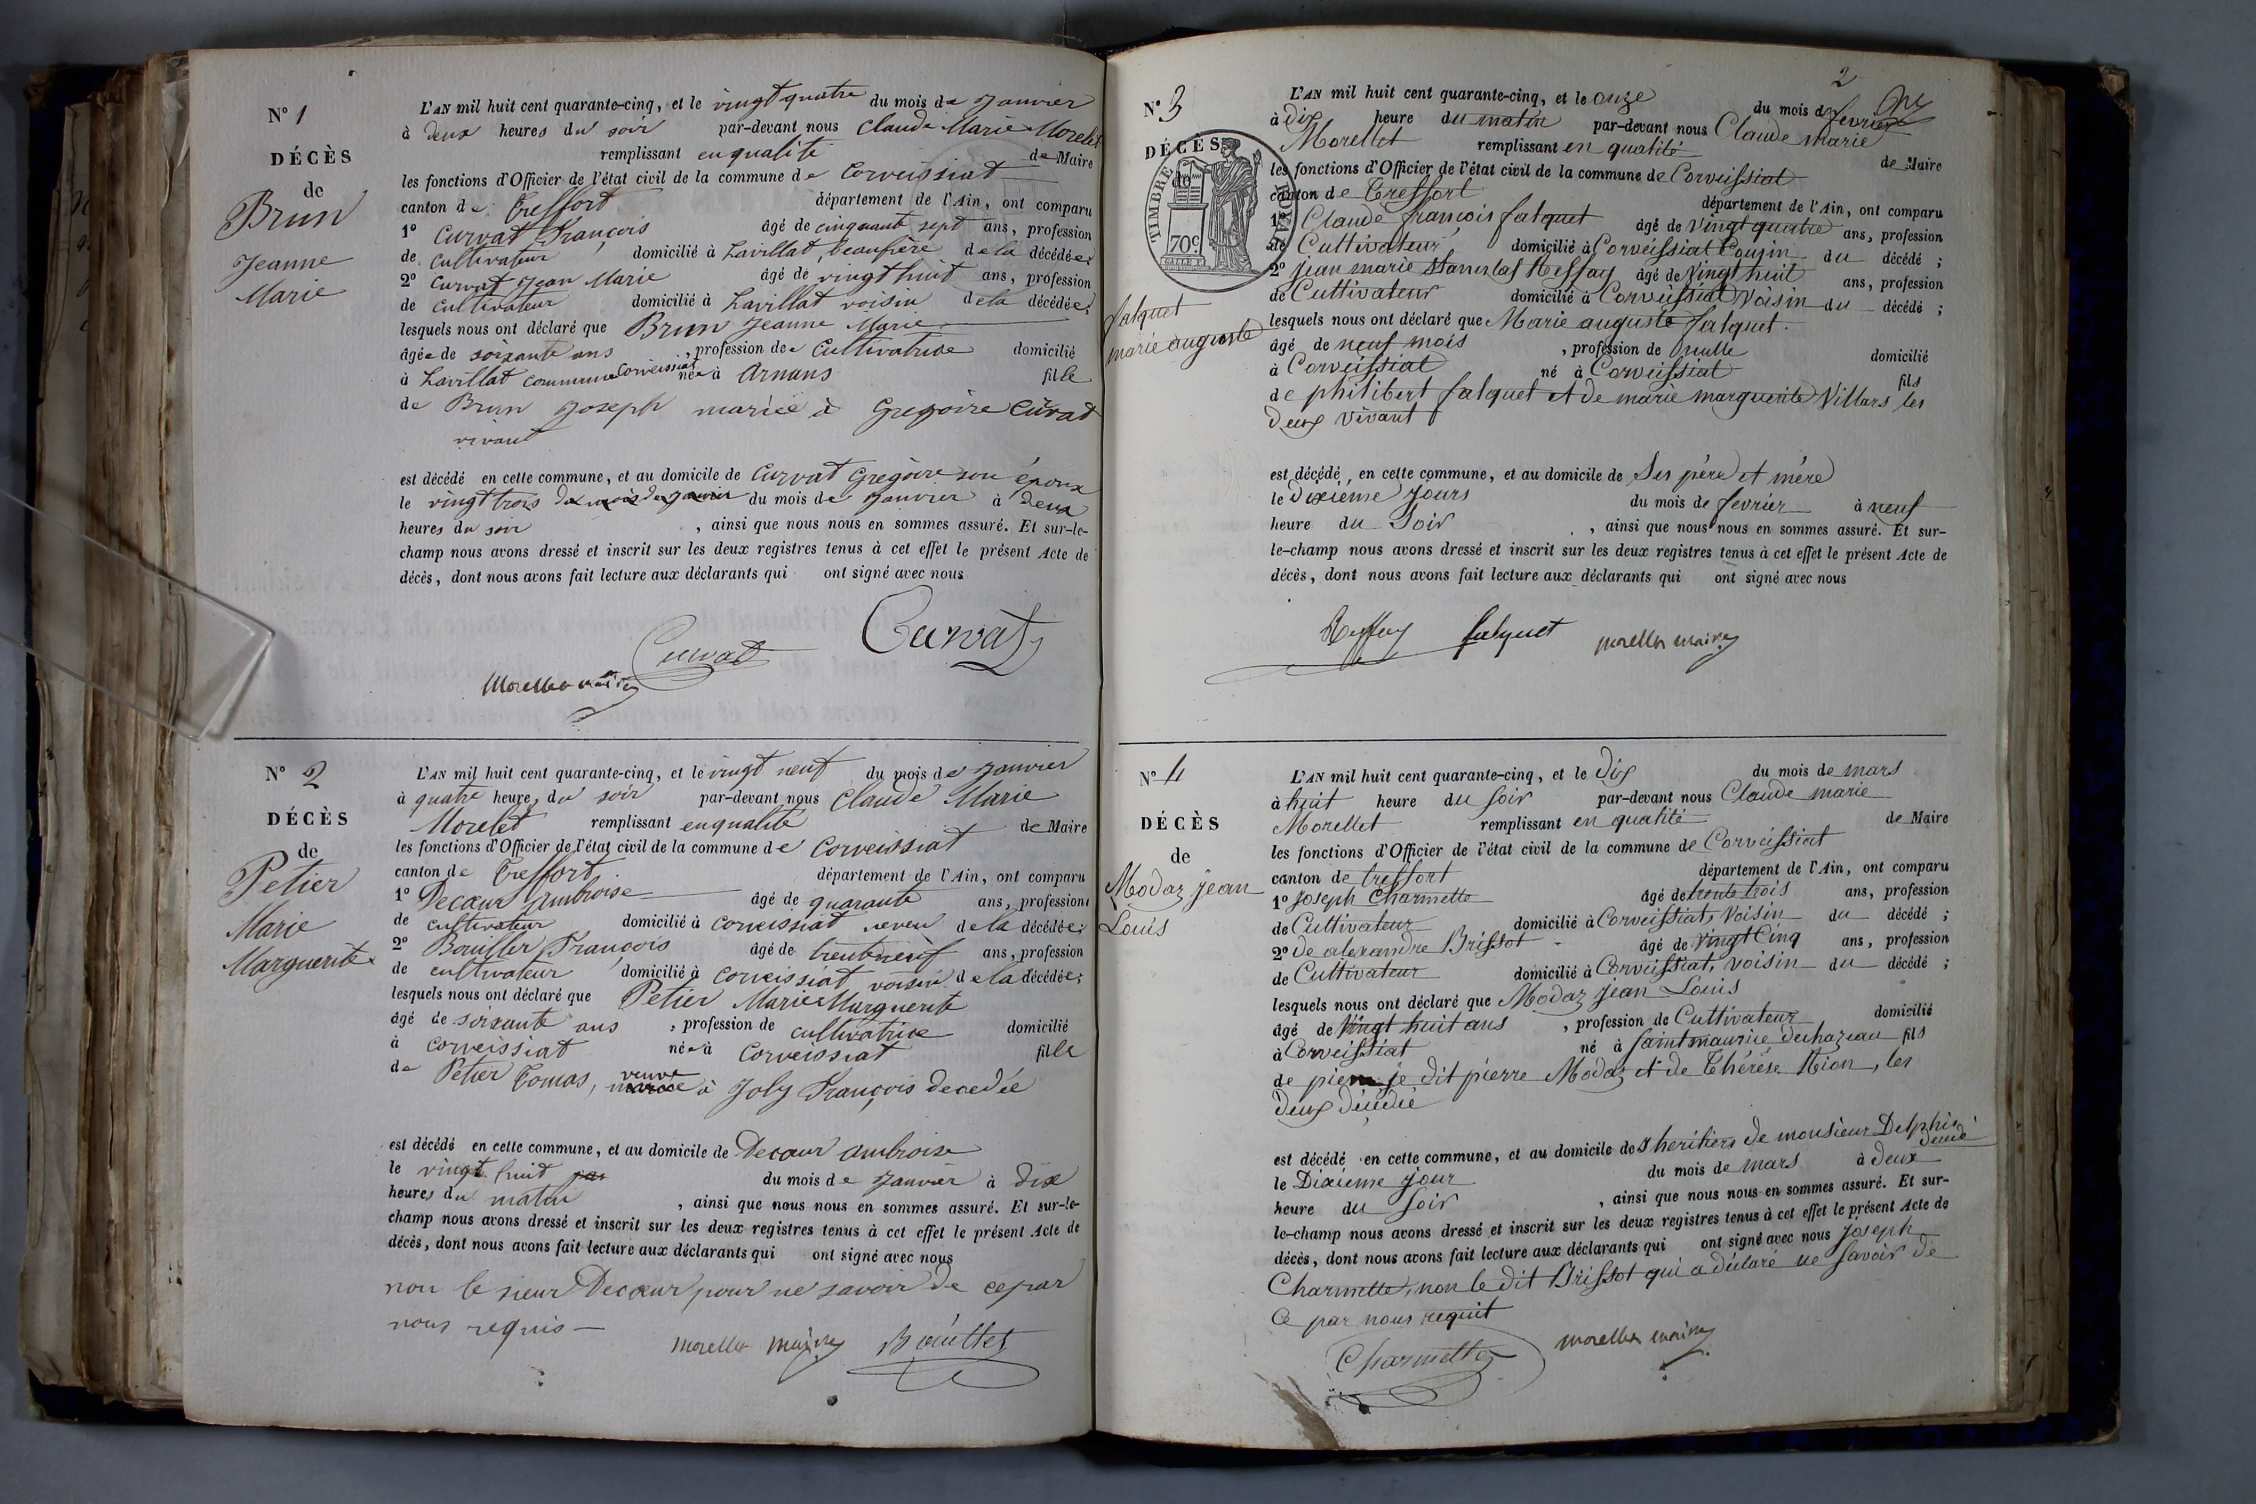 N° 1
DÉCÈS
de
Brun
Jeanne
Marie
L'AN mil huit cent quarante-cinq, et le vingt quatre du mois de Janvier
à deux heures du soir par-devant nous Claude Marie Morelet
remplissant en qualité de Maire
les fonctions d'Officier de l'état civil de la commune de Corveissiat
canton de Treffort département de l'Ain, ont comparu
1° Curvat François âgé de cinquante sept ans, profession
de cultivateur domicilié à Lavillat, beaufrere de la décédée;
2° Curvat Jean Marie âgé de vingt huit ans, profession
de cultivateur domicilié à Lavillat voisin de la décédée;
lesquels nous ont déclaré que Brun Jeanne Marie
âgée de soixante ans, profession de Cultivatrice domicilié
à Lavillat commune Corveissiat née à Arnans fille
de Brun Joseph mariée à Gregoire Curvat
vivant
est décédé en cette commune, et au domicile de Curvat Gregoire son époux
le vingt trois du mois de janvier du mois de Janvier à deux
heures du soir, ainsi que nous nous en sommes assuré. Et sur-le-
champ nous avons dressé et inscrit sur les deux registres tenus à cet effet le présent Acte de
décès, dont nous avons fait lecture aux déclarants qui ont signé avec nous
Curvat Curvat
Morellet maire
N° 2
DÉCÈS
de
Petier
Marie
Marguerite
L'AN mil huit cent quarante-cinq, et le vingt neuf du mois de Janvier
à quatre heures du soir par-devant nous Claude Marie
Morelet remplissant en qualité de Maire
les fonctions d'Officier de l'état civil de la commune de Corveissiat
canton de Treffort département de l'Ain, ont comparu
1° Decœur Ambroise âgé de quarante ans, profession
de cultivateur domicilié à Corveissiat neveu de la décédée;
2° Bouillet François âgé de trente neuf ans, profession
de cultivateur domicilié à Corveissiat voisin de la décédée;
lesquels nous ont déclaré que Petier Marie Marguerite
âgé de soixante ans, profession de cultivatrice domicilié
à Corveissiat née à Corveissiat fille
de Petier Tomas, mariée veuve à Joly François decedée
est décédé en cette commune, et au domicile de Decœur Ambroise
le vingt huit du mois de Janvier à dix
heures du matin, ainsi que nous nous en sommes assuré. Et sur-le-
champ nous avons dressé et inscrit sur les deux registres tenus à cet effet le présent Acte de
décès, dont nous avons fait lecture aux déclarants qui ont signé avec nous
non le sieur Decœur pour ne savoir de ce par
nous requis
Morellet maire Bouillet
2
N° 3
DÉCÈS
de
TIMBRE ROYAL
70c
falquet
marie auguste
L'AN mil huit cent quarante-cinq, et le onze du mois de fevrier
à dix heure du matin par-devant nous Claude marie
Morellet remplissant en qualité de Maire
les fonctions d'Officier de l'état civil de la commune de Corveissiat
canton de Treffort département de l'Ain, ont comparu
1° Claude françois falquet âgé de vingt quatre ans, profession
de Cultivateur domicilié à Corveissiat Cousin du décédé;
2° jean marie Stanislas Reffay âgé de vingt huit ans, profession
de Cultivateur domicilié à Corveissiat Voisin du décédé;
lesquels nous ont déclaré que Marie auguste falquet
âgé de neuf mois, profession de nulle domicilié
à Corveissiat né à Corveissiat fils
de philibert falquet et de marie marguerite Villars les
deux vivant
est décédé, en cette commune, et au domicile de Ses père et mère
le dixieme jours du mois de fevrier à neuf
heure du Soir, ainsi que nous nous en sommes assuré. Et sur-
le-champ nous avons dressé et inscrit sur les deux registres tenus à cet effet le présent Acte de
décès, dont nous avons fait lecture aux déclarants qui ont signé avec nous
Reffay falquet Morellet maire
N° 4
DÉCÈS
de
Modaz jean
Louis
L'AN mil huit cent quarante-cinq, et le dix du mois de mars
à huit heure du soir par-devant nous Claude marie
Morellet remplissant en qualité de Maire
les fonctions d'Officier de l'état civil de la commune de Corveissiat
canton de treffort département de l'Ain, ont comparu
1° Joseph Charmette âgé de trente trois ans, profession
de Cultivateur domicilié à Corveissiat, Voisin du décédé;
2° de alexandre Brissot âgé de vingt Cinq ans, profession
de Cultivateur domicilié à Corveissiat, voisin du décédé;
lesquels nous ont déclaré que Modaz Jean Louis
âgé de vingt huit ans, profession de Cultivateur domicilié
à Corveissiat né à saint maurice dechazeau fils
de pierre je dit pierre Modaz et de Thérése Nion, les
deux décédé
est décédé en cette commune, et au domicile des heritiers de monsieur Delphin
le Dixieme jour du mois de mars à deux
heure du Soir, ainsi que nous nous en sommes assuré. Et sur-
le-champ nous avons dressé et inscrit sur les deux registres tenus à cet effet le présent Acte de
décès, dont nous avons fait lecture aux déclarants qui ont signé avec nous Joseph
Charmette, non le dit Brissot qui a déclaré ne savoir de
Ce par nous requit
Charmette Morellet maire